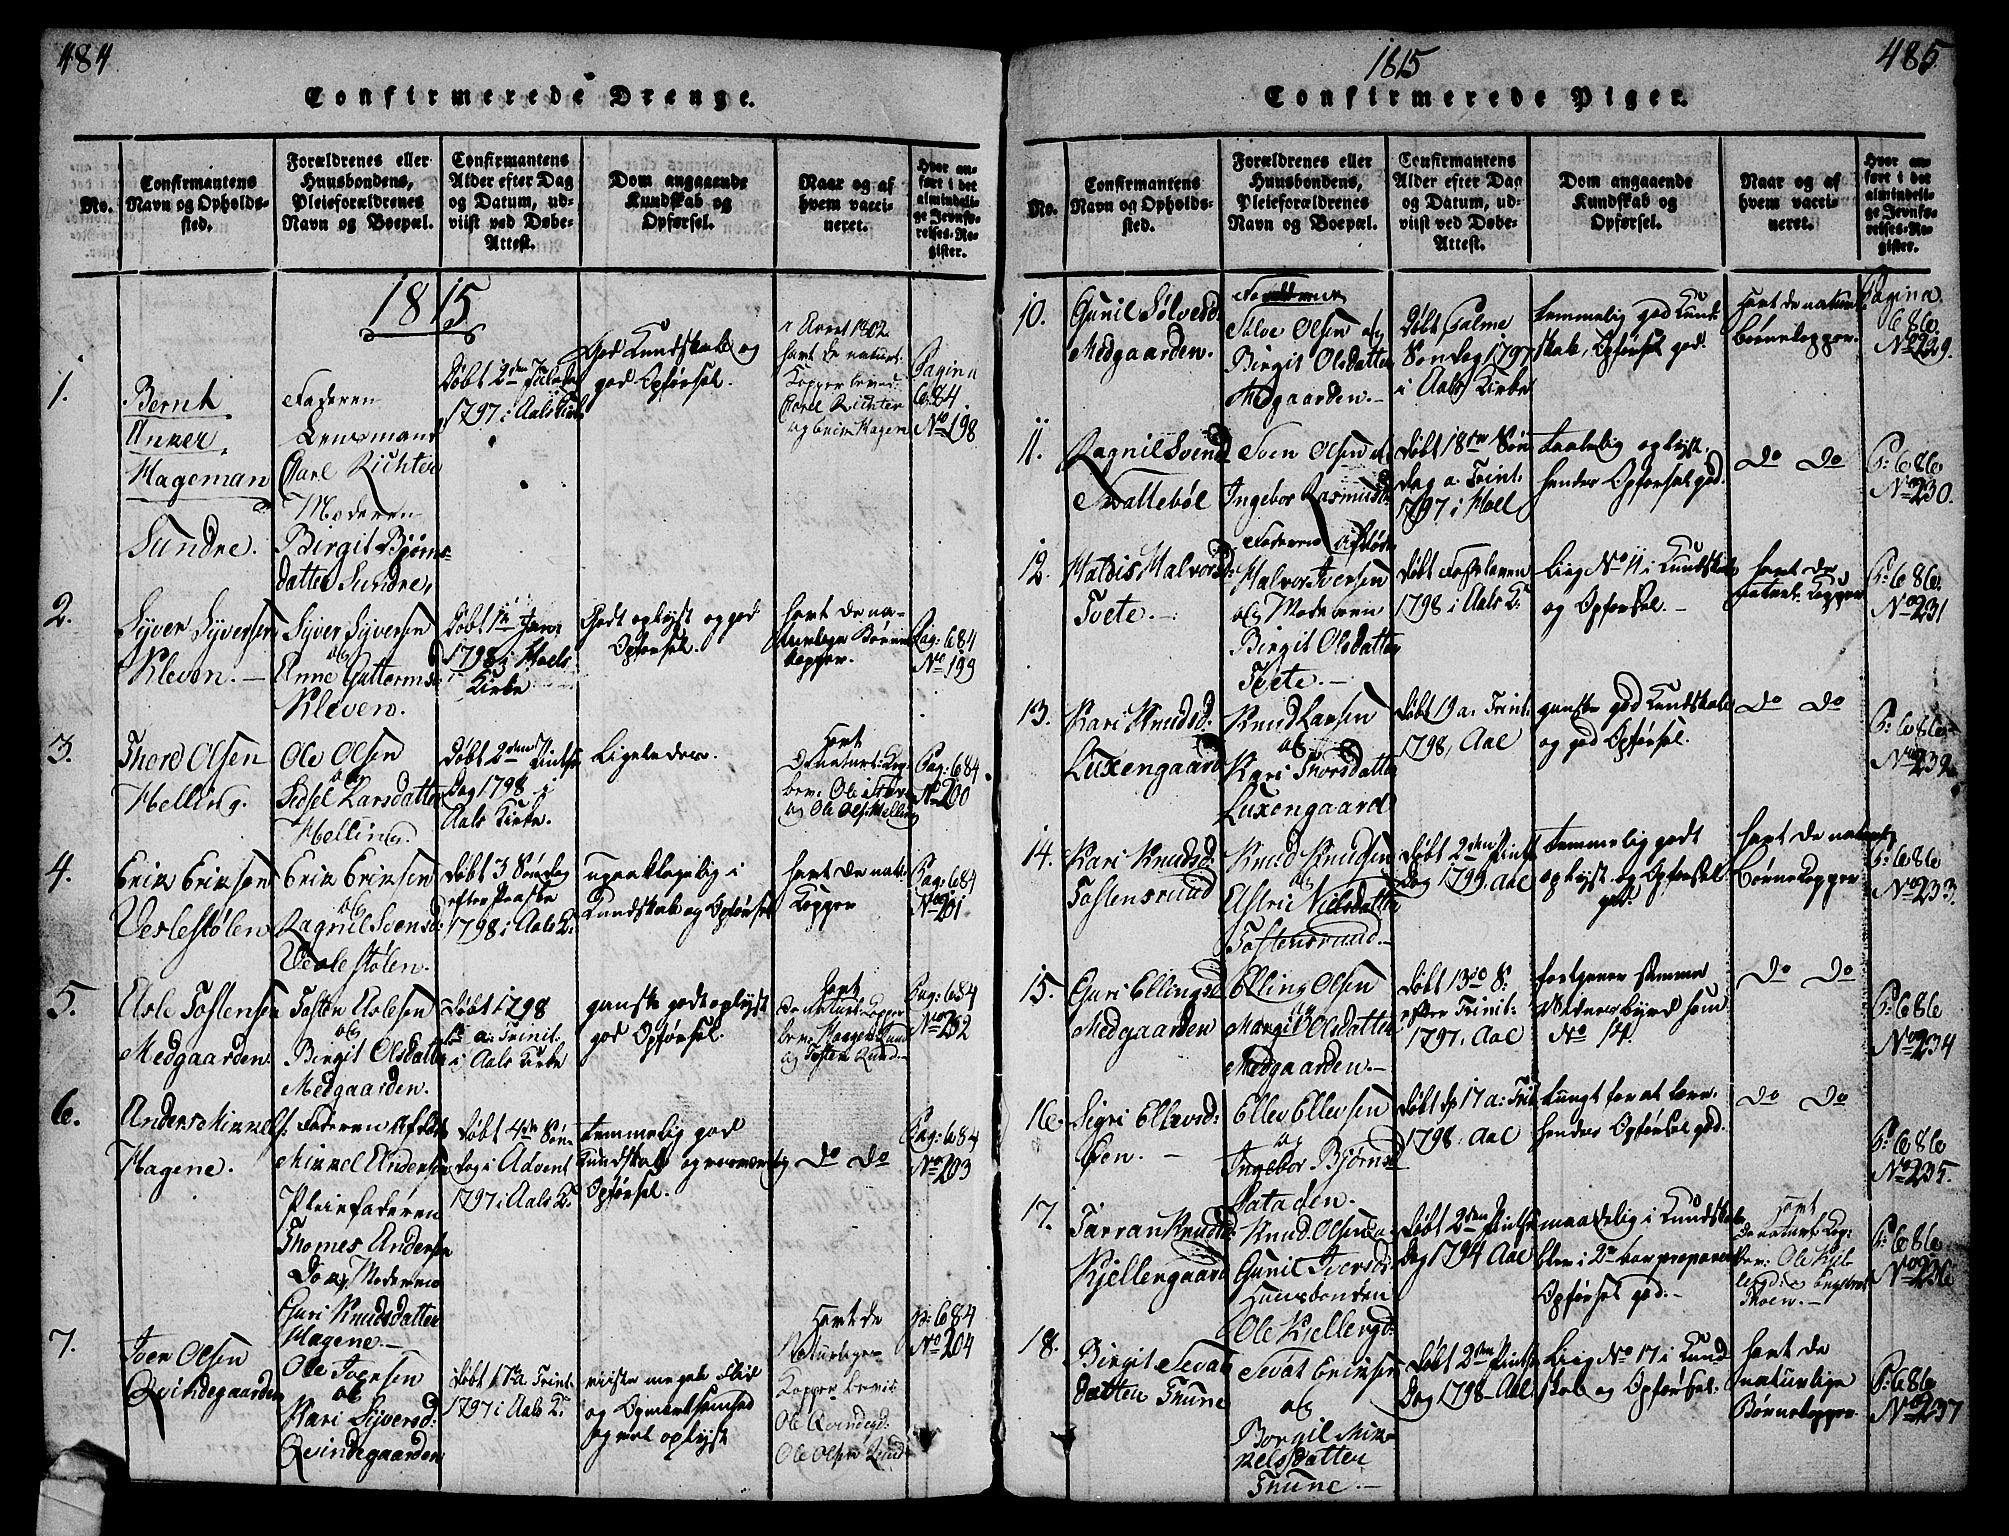 484
Confirmerede Drenge.
No.
Confirmantens
Navn og Opholds-
sted.
Forældrenes eller
Huusbondens,
Pleieforældrenes
Navn og Boepæl.
Confirmantens
Alder efter Dag
og Datum, ud-
viist ved Døbe-
Attest.
Dom angaaende
Kundskab og
Opførsel.
Naar og af
hvem vacci-
neret.
Hvor an-
ført i det
almindeli-
ge Jevnfø-
relses-Re-
gister.
1815
1.
Bernt
Anker
Hageman
Sundre.
Faderen
Lensmand
Carl Richter
Moderen
Birgit Bjørns-
datter Sundre,
Døbt 2den Juledag
1797 i Aals Kirke
God Kundskab og
god Opførsel.
Aaret 1802
havt de naturl.
Kopper bevid.
Carl Richter
og Erik Hagen
Pagina
684.
No 198
2.
Syver Syversen
Kleven.
Syver Syversen
og
Anne Guttormsd.
Kleven.
Døbt 1te Jan.
1798 i Hoels
Kirke
Godt oplyst og god
Opførsel.
havt de na-
turlige Børne
kopper.
Pag: 684
No 199
3.
Thord Olsen
Helling.
Ole Olsen
og
Sidsel Larsdatter
Helling.
Døbt 2den Pintse
Dag 1798 i
Aals Kirke.
Ligeledes.
havt
de naturl: Kop.
bev: Ole
og Ole Ols: Helling
Pag: 684
No 200
4.
Erik Eriksen
Veslestølen
Erik Eriksen
og
Ragnil Svensd:
Veslestølen.
Døbt 3 Søndag
efter Paaske
1798 i Aals K.
upaaklagelig i
Kundskab og Opførsel
havt de nat:
Kopper
Pag: 684
No 201
5.
Asle Tostensen
Medgaarden
Tosten Aslesen
og
Birgit Olsdatter
Medgaarden.
Døbt 1798
a: Trinit.
i Aals Kirke
ganske godt oplyst
god Opførsel.
havt
de naturl: Kopper
bev: Haagen Rund
og Tosten Rund.
Pag: 684
No 202
6.
Anders Mikkels:
Hagene.
Faderen Afdøde
Mikkel Andersen
Pleiefaderen
Thomes Andersen
Do og Moderen
Guri Knudsdatter
Hagene
Døbt 4de Søn-
dag i Advent
1797 i Aals K.
temmelig god
Kundskab og
Opførsel.
Do Do
Pag: 684
No 203
7.
Iver Olsen
Qvindegaarden
Ole Iversen
og
Kari Syversd:
Qvindegaarden
Døbt 17 a Trint.
1797 i Aals K.
viiste megen Flid
og Opmærksomhed
og vel oplyst
Havt de
Naturlige
Kopper bevis
Ole Qvindegd:
Ole Olsen Rund
P: 684
No 204
1815
485
Confirmerede Piger.
No.
Confirmantens
Navn og Opholds-
sted.
Forældrenes eller
Huusbondens,
Pleieforældrenes
Navn og Boepæl.
Confirmantens
Alder efter Dag
og Datum, ud-
viist ved Døbe-
Attest.
Dom angaaende
Kundskab og
Opførsel.
Naar og af
hvem vacci-
neret.
Hvor an-
ført i det
almindeli-
ge Jevnfø-
relses-Re-
gister.
10.
Gunil Sølvesd:
Medgaarden.
Sølve Olsen og
Birgit Olsdatter
Medgaarden.
Døbt Palme
Søndag 1797
i Aals Kirke
temmelig god Kund-
skab, Opførsel god.
havt de naturl:
Børnekopper.
Pagina
686.
No 229.
11.
Ragnil Svends:
Svallebøl
Sven Olsen og
Ingebor Rasmusd:
Døbt 18de Søn
dag a. Trint:
1797 i Hoel
taalelig oplyst
hendes Opførsel god.
Do Do
P: 686
No 230.
12.
Haldis Halvorsd:
Tvete.
Faderen Afdøde
Halvor Iversen
og Moderen
Birgit Olsdatter
Tvete.
Døbt Fastelaven
1798 i Aals K.
Liig No 11 i Kundskab
og Opførsel
havt de
naturl. Kopper
P: 686.
No 231
13.
Kari Knudsd.
Luxengaard
Knud Larsen
og
Kari Thorsdatter
Luxengaard
Døbt 19 a. Trint:
1798, Aal
ganske god Kundskab
og god Opførsel.
Do Do
P: 686
No 232
14.
Kari Knudsd.
Tostensruud
Knud Knudsen
og
Astrie Nielsdatter
Tostensruud.
Døbt 2den Pintse
Dag 1799. Aal
temmelig godt
oplyst og Opførsel
god.
havt de naturl:
Børnekopper
P: 686
No 233.
15.
Guri Ellingsd
Medgaarden
Elling Olsen
og
Margit Olsdatter
Medgaarden.
Døbt 13de S:
efter Trinit:
1797. Aal
fortjener samme
Vidnesbyrd som
No 14.
Do Do
P: 686
No 234
16.
Sigri Ellevsd:
Øen.
Ellev Ellevsen
og
Ingebor Bjørnsd
Sataden.
Døbt Dp 17 a: Trit
1798, Aal
tungt for at lære
hendes Opførsel god.
Do Do
P: 686
No 235.
17.
Tarran Knudsd:
Kjellengaard
Knud Olsen og
Gunil Iversd:
Huusbonden
Ole Kjellengd:
Døbt 2den Pintse
Dag 1794 Aal
maadelig i Kundskab
blev i 2de Aar præpareret
Opførsel god.
havt
de naturl: Kop:
bev: Ole Kjel-
lengd: og Engebret
Thoen.
P: 686
No 236
18.
Birgit Sevat
datter Thune
Sevat Eriksen
og
Borgil Mik-
kelsdatter
Thune.
Døbt 2den Pintse
Dag 1798 Aal
Liig No 17 i Kund-
skab og Opførsel.
havt de
naturlige
Børnekopper.
P: 686
No 237